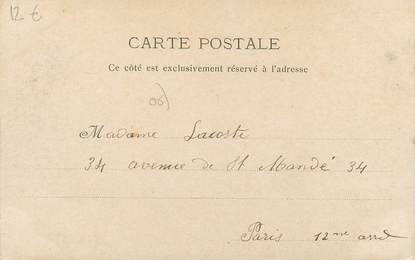 12 €
CARTE POSTALE
Ce côté est exclusivement réservé à l'adresse
06)
Madame Lacoste
34 avenue de St Mandé 34
Paris 12me arrd